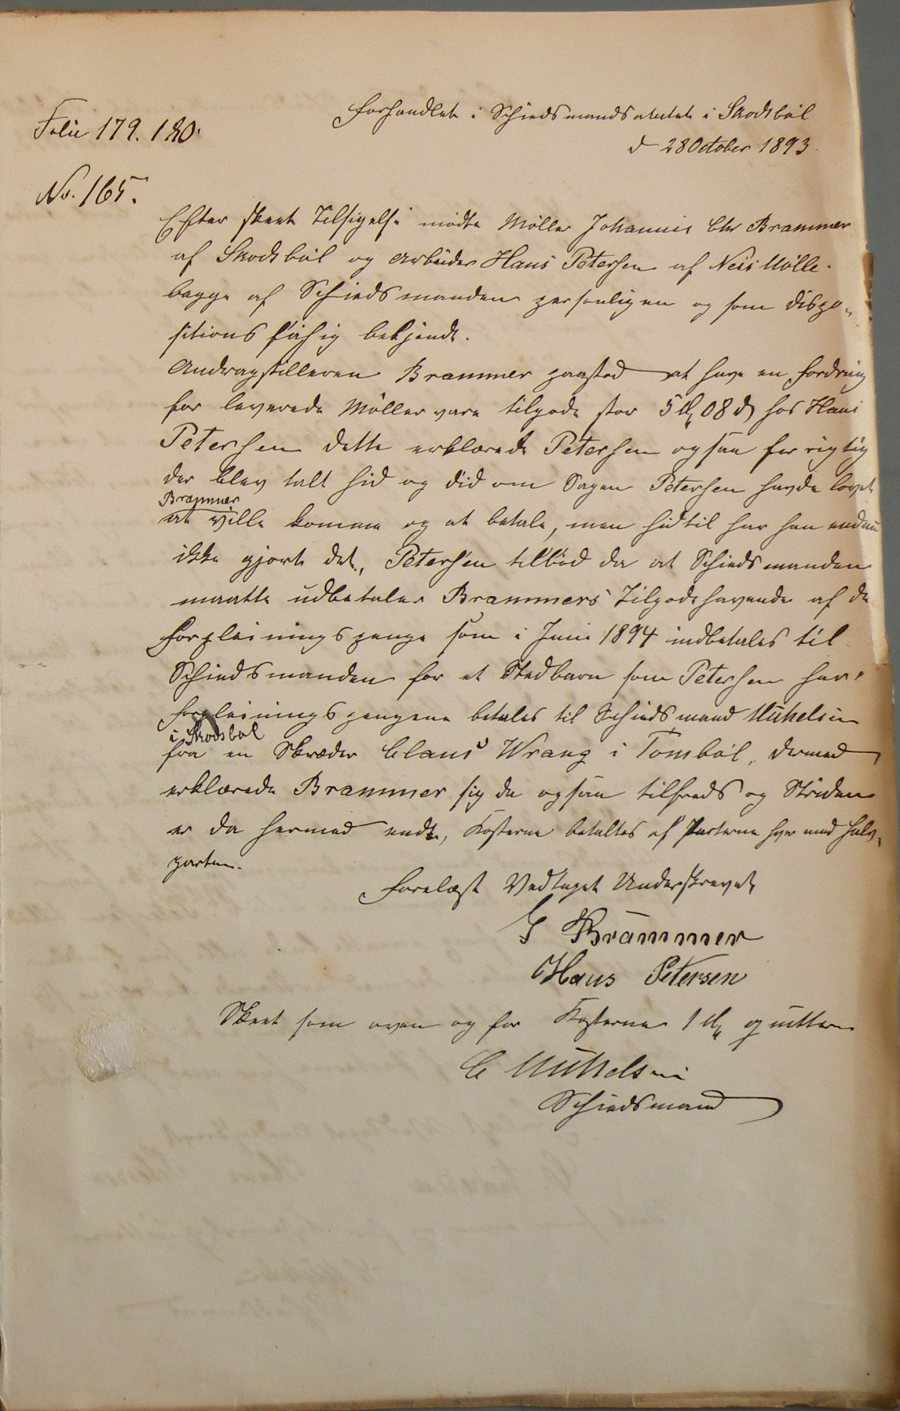 Forhandlet i Schiedsmandsamtet i Skodsböl
d 28 October 1893.
Folie 179. 180.
No. 165.
Efter skeet Tilsigelse mödte Möller Johannis Chr Brammer
af Skodsböl og Arbeider Hans Petersen af Neis Mölle.
begge af Schiedsmanden personligen og som dispo-
sitionsfähig bekjendt.
Andragstilleren Brammer paastod at have en Fordring
for leverede Möllervare tilgode stor 5 M 08 d hos Hans
Petersen dette erklærede Petersen ogsaa for rigtig
der blev talt hid og did om Sagen Petersen havde lovet
Brammer
at ville komme og at betale, men hidtil har han endnu
ikke gjort det, Petersen tilböd da at Schiedsmanden
maatte udbetale Brammers Tilgodehavende af de
Forpleiningspenge som i Juni 1894 indbetales til
Schiedsmanden for et Stedbarn som Petersen har,
Forpleiningspengene betales til Schiedsmand Mikelsen
i Skodsböl
fra en Skræder Claus Wrang i Tomböl, dermed
erklærede Brammer sig da ogsaa tilfreds og Striden
er da hermed endt, Kosterne betaltes af Parterne hver med Halv-
parten.
Forelæst Vedtaget Underskrevet
J Brammer
Hans Petersen
Skeet som oven og for Kosterne 1 M quitteres
C Mikelsen
Schiedsmand